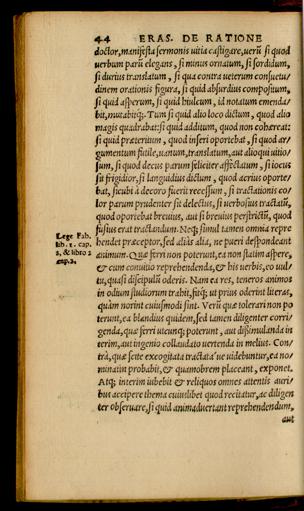 44 ERAS. DE RATIONE
doctor, manifesta sermonis uitia castigare, uerũ si quod
uerbum parũ elegans, si minus ornatum, si sordidum,
si durius translatum, si qua contra ueterum consuetu/
dinem orationis figura, si quid absurdius compositum,
si quid asperum, si quid hiulcum, id notatum emenda/
bit, mutabitq;. Tum si quid alio loco dictum, quod alio
magis quadrabat: si quid additum, quod non cohæreat:
si quid præteritum, quod inseri oportebat, si quod ar/
gumentum futile, uanum, translatum, aut alioqui uitio/
sum, si quid decus parum feliciter affectatum, si iocus
sit frigidior, si languidius dictum, quod acrius oporte/
bat, sicubi à decoro fuerit recessum, si tractationis co/
lor parum prudenter sit delectus, si uerbosius tractatũ,
quod oportebat breuius, aut si breuius perstrictũ, quod
fusius erat tractandum. Neq; simul tamen omnia repre
hendet præceptor, sed aliàs alia, ne pueri despondeant
animum. Quæ ferri non poterunt, ea non statim aspere,
& cum conuitio reprehendenda, & his uerbis, eo uul/
tu, quasi discipulũ oderis. Nam ea res, teneros animos
in odium studiorum trahit, fitq; ut prius oderint literas,
quàm norint cuiusmodi sint. Verũ quæ tolerari non po
terunt, ea blandius quidem, sed tamen diligenter corri/
genda, quæ ferri utcunq; poterunt, aut dissimulanda in
terim, aut ingenio collaudato uertenda in melius. Con/
trà, quæ scite excogitata tractataue uidebuntur, ea no/
minatim probabit, & quamobrem placeant, exponet.
Atq; interim iubebit & reliquos omnes attentis auri/
bus accipere thema cuiuslibet quod recitatur, ac diligen
ter obseruare, si quid animaduertant reprehendendum,
aut
Lege Fab.
lib. 1. cap.
2, & libro 2
cap.2.